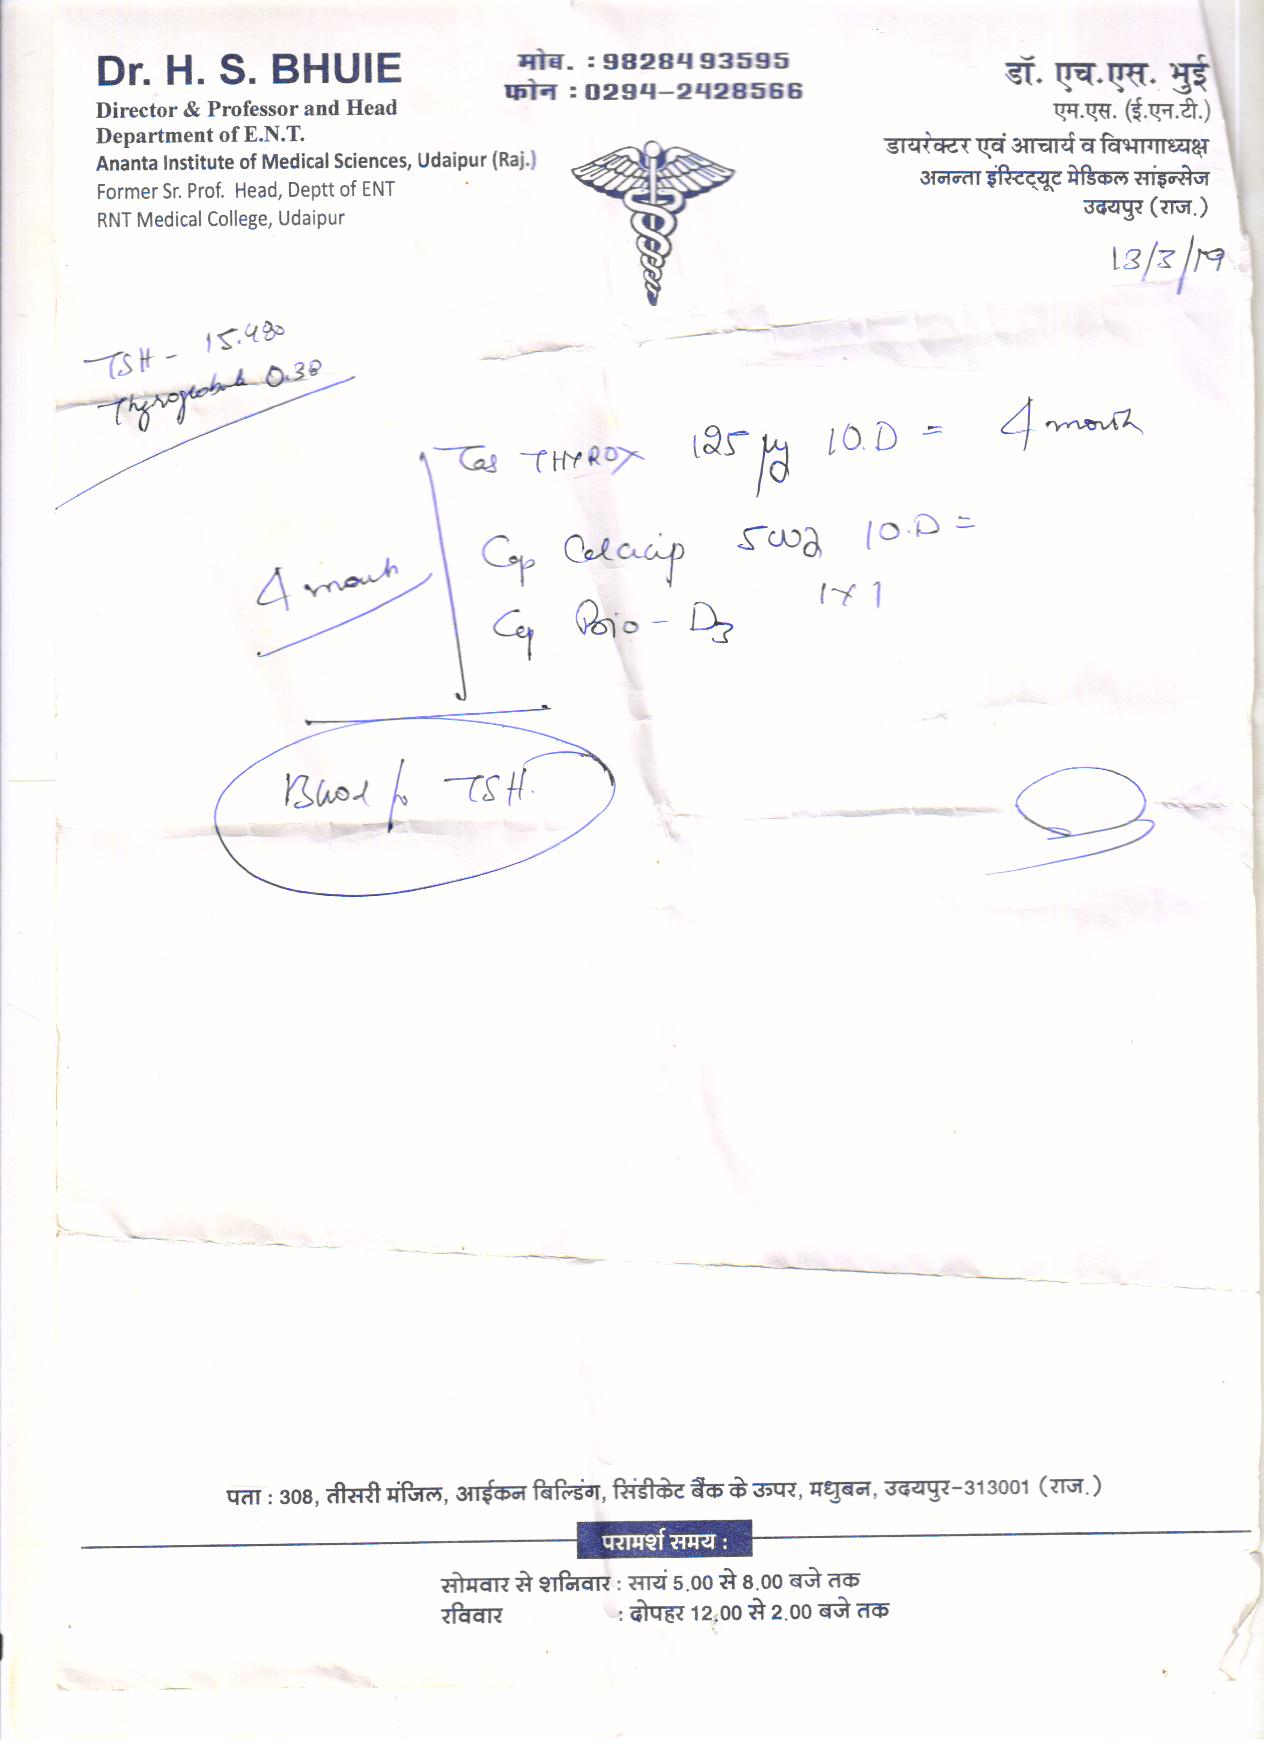 Dr. H. S. BHUIE
Director & Professor and Head
Department of E.N.T.
Ananta Institute of Medical Sciences, Udaipur (Raj.)
Former Sr. Prof. Head, Deptt of ENT
RNT Medical College, Udaipur
मोब. : 9828493595
फोन : 0294-2428566
डॉ. एच.एस. भुई
एम.एस. (ई.एन.टी.)
डायरेक्टर एवं आचार्य व विभागाध्यक्ष
अनन्ता इंस्टिट्यूट मेडिकल सांइन्सेज
उदयपुर (राज.)
13/3/19
TSH - 15.480
0.38
THYROX 125 µg 1O.D = 4 month
Cap 1O.D =
4 month
Cap Bio - D3 1x1
TSH.
पता : 308, तीसरी मंजिल, आईकन बिल्डिंग, सिंडीकेट बैंक के ऊपर, मधुबन, उदयपुर-313001 (राज.)
परामर्श समय :
सोमवार से शनिवार : सायं 5.00 से 8.00 बजे तक
रविवार : दोपहर 12.00 से 2.00 बजे तक